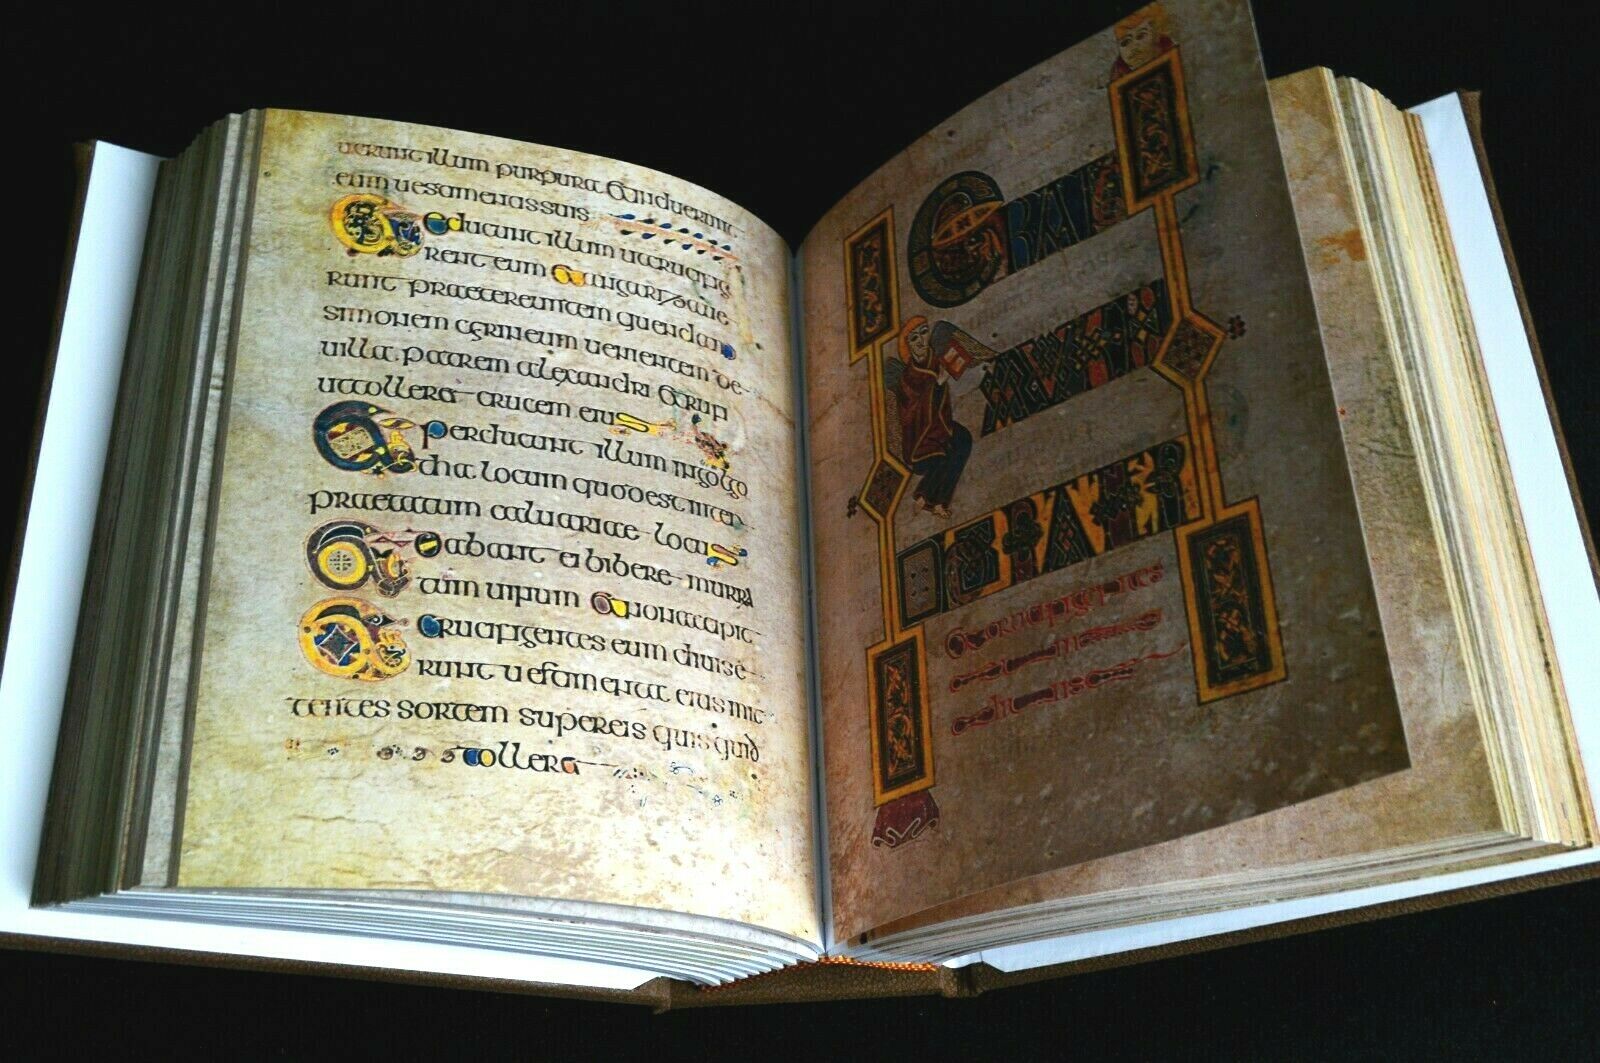 uerunt illum purpura & induerunt
eum uestimentis suis
& educunt illum ut crucifige
rent eum & angariza uie
runt praetereuntem quendam
simonem cyrineum uenientem de
uilla patrem alexandri & rufi
ut tolleret crucem eius
& perducunt illum in golgo
tha locum quod est inter
praetatum caluariae locus
& dabant ei bibere murra
tum uinum & non accipit
& crucifigentes eum diuise
runt uestimenta eius mit
tentes sortem super eis quis quid
tolleret
ERAT
AUTEM
HORA TER
& crucifigentes
eum
diuise